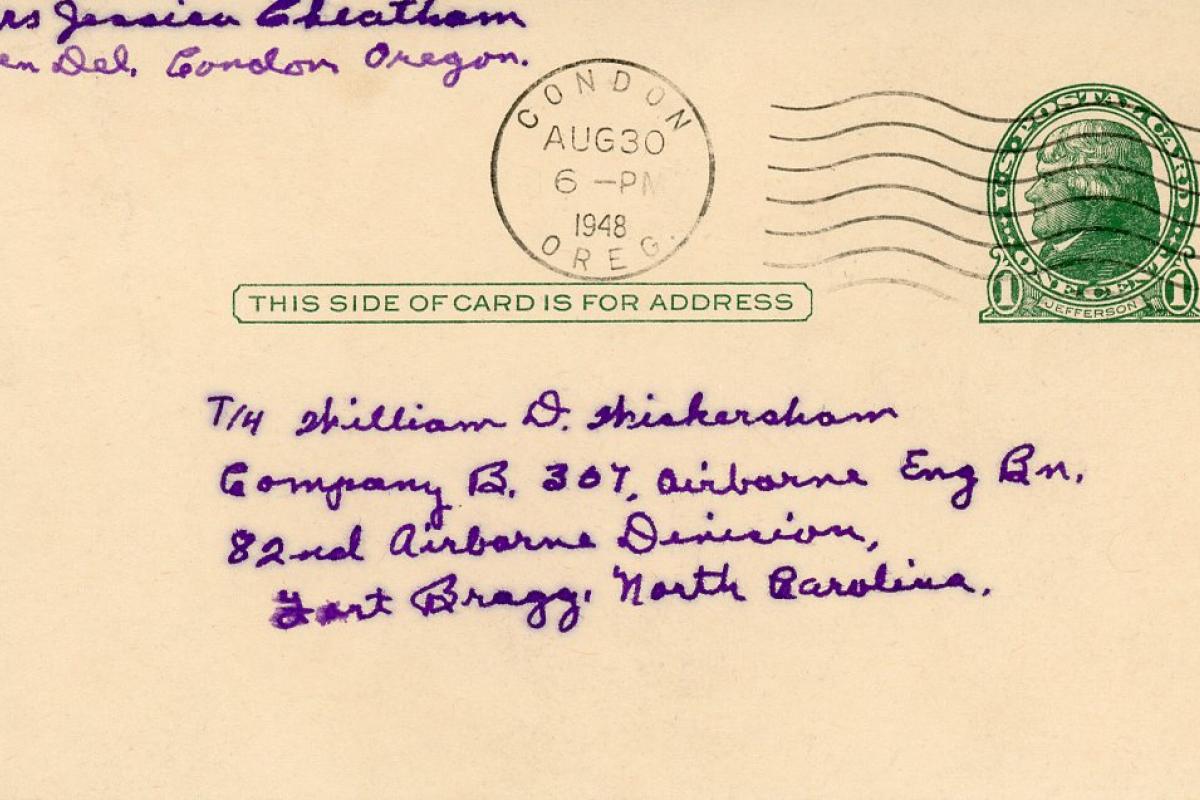 rs Jessica Cheatham
en Del, Condon Oregon.
CONDON
AUG 30
6 -PM
1948
OREG.
U.S. POSTAL CARD
ONE CENT
1 JEFFERSON 1
THIS SIDE OF CARD IS FOR ADDRESS
T/4 William D. Wiskersham
Company B, 307, Airborne Eng Bn.
82nd Airborne Division,
Fort Bragg, North Carolina.